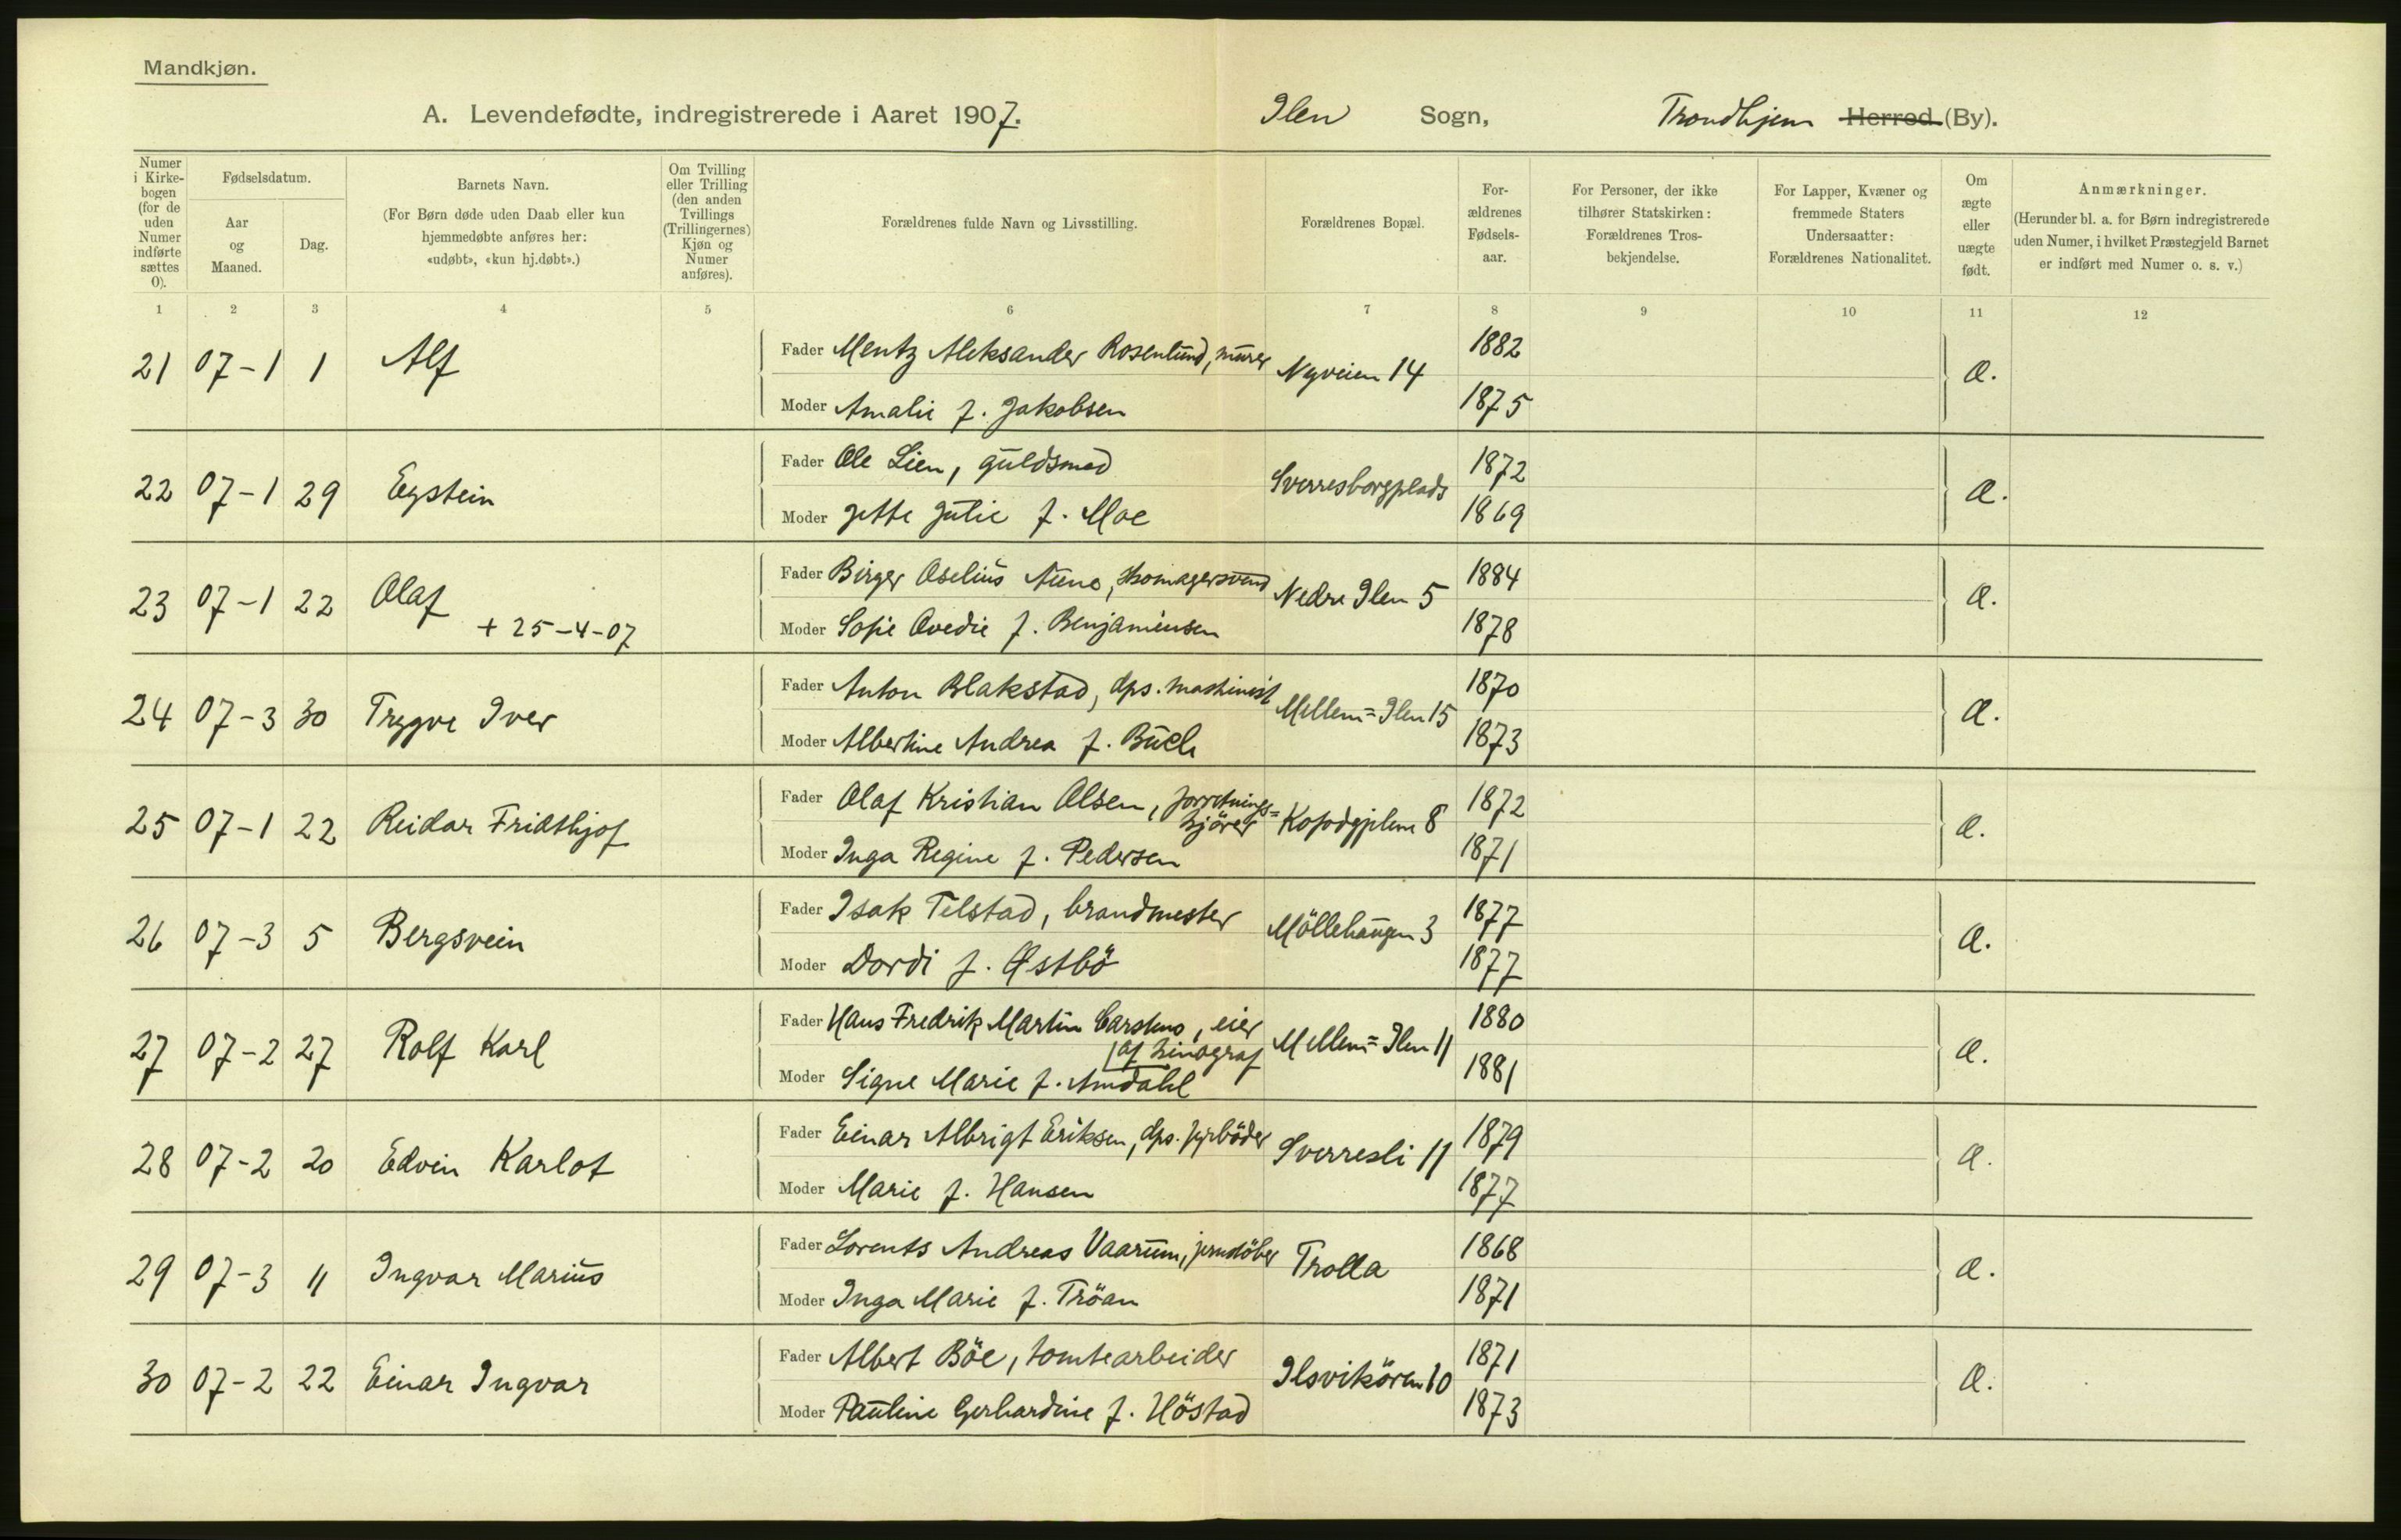 Mandkjøn.
A. Levendefødte, indregistrerede i Aaret 1907. Ilen Sogn, Trondhjem Herred (By).
Numer i Kirkebogen (for de uden Numer indførte sættes 0).
Fødselsdatum.
Aar og Maaned.
Dag.
Barnets Navn.
(For Børn døde uden Daab eller kun hjemmedøbte anføres her: «udøbt», «kun hj.døbt».)
Om Tvilling eller Trilling (den anden Tvillings (Trillingernes) Kjøn og Numer anføres).
Forældrenes fulde Navn og Livsstilling.
Forældrenes Bopæl.
Forældrenes Fødselsaar.
For Personer, der ikke tilhører Statskirken: Forældrenes Trosbekjendelse.
For Lapper, Kvæner og fremmede Staters Undersaatter: Forældrenes Nationalitet.
Om ægte eller uægte født.
Anmærkninger.
(Herunder bl. a. for Børn indregistrerede uden Numer, i hvilket Præstegjeld Barnet er indført med Numer o. s. v.)
1 2 3 4 5 6 7 8 9 10 11 12
21 07-1 1 Alf Fader Mentz Aleksander Rosenlund, murer Nyveien 14 1882 Æ.
Moder Amalie f. Jakobsen 1875
22 07-1 29 Eystein Fader Ole Lien, guldsmed Sverresborgplads 1872 Æ.
Moder Jette Julie f. Moe 1869
23 07-1 22 Olaf Fader Birger Oselius Aune, skomagersvend Nedre Ilen 5 1884 Æ.
+ 25-4-07 Moder Sofie Ovedie f. Benjaminsen 1878
24 07-3 30 Trygve Iver Fader Anton Blakstad, dps. maskinist Mellem=Ilen 15 1870 Æ.
Moder Albertine Andrea f. Buch 1873
25 07-1 22 Reidar Fridthjof Fader Olaf Kristian Olsen, forretnings=kjörer 8 1872 Æ.
Moder Inga Regine f. Pedersen 1871
26 07-3 5 Bergsvein Fader Isak Telstad, brandmester Möllehaugen 3 1877 Æ.
Moder Dordi f. Østbö 1877
27 07-2 27 Rolf Karl Fader Hans Fredrik Martin Carstens, eier af kinograf Mellem=Ilen 11 1880 Æ.
Moder Signe Marie f. Amdahl 1881
28 07-2 20 Edvin Karlot Fader Einar Albrigt Eriksen, dps. fyrböder Sverresli 11 1879 Æ.
Moder Marie f. Hansen 1877
29 07-3 11 Ingvar Marius Fader Lorents Andreas Vaarum, jernstöber Trolla 1868 Æ.
Moder Inga Marie f. Tröan 1871
30 07-2 22 Einar Ingvar Fader Albert Böe, tomtearbeider Ilsvikören 10 1871 Æ.
Moder Pauline Gerhardine f. Höstad 1873